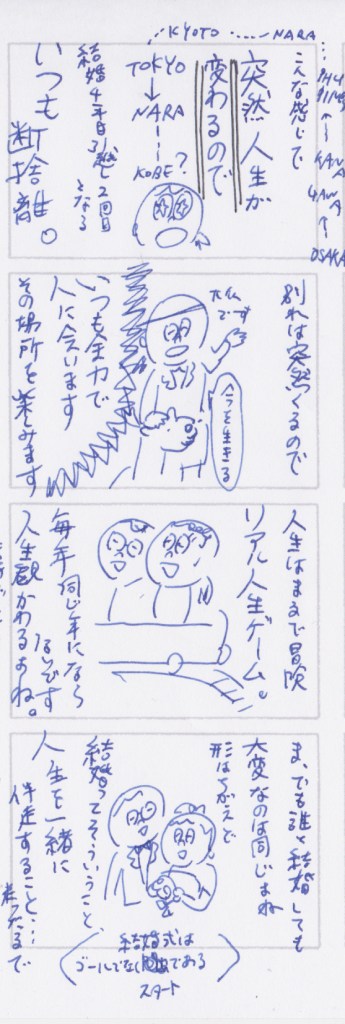 KYOTO ---- NARA
KANA
GAWA
OSAKA
こんな感じで
突然人生が
変わるので
TOKYO
NARA
KOBE?
結婚4年目引越し2回目
となる
いつも
断捨離。
別れは突然くるので
大仏
です
今を生きる
いつも全力で
人に会います
その場所を楽しみます
人生はまるで冒険
リアル人生ゲーム。
毎年同じ年になら
ないです
人生観かわるよね。
ま、でも誰と結婚しても
大変なのは同じよね
形はちがえど
結婚ってそういうこと、
人生を一緒に
伴走すること…
結婚式は
ゴールでなく
である
スタート